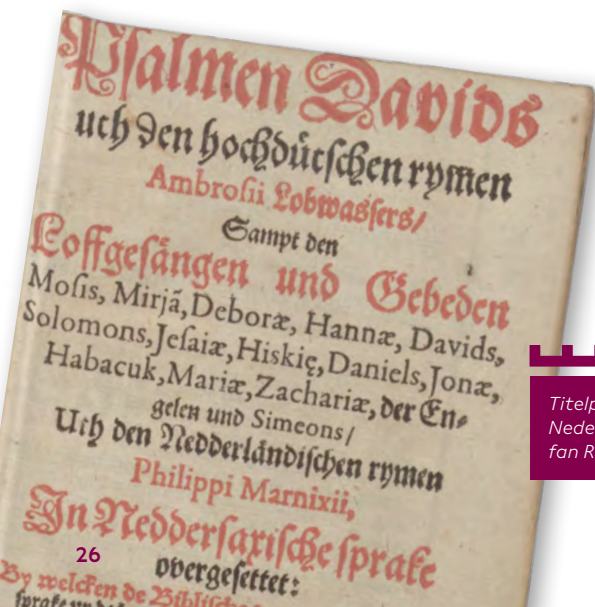 Psalmen Davids
uth den hochdütschen rymen
Ambrosii Lobwassers/
Sampt den
Loffgesängen und Gebeden
Mosis, Mirjã, Deboræ, Hannæ, Davids,
Solomons, Jesaiæ, Hiskię, Daniels, Jonæ,
Habacuk, Mariæ, Zachariæ, der En⸗
gelen und Simeons/
Uth den Nedderländischen rymen
Philippi Marnixii,
In Neddersaxische sprake
overgesettet:
By welcken de
26
Titelp
Nede
fan R